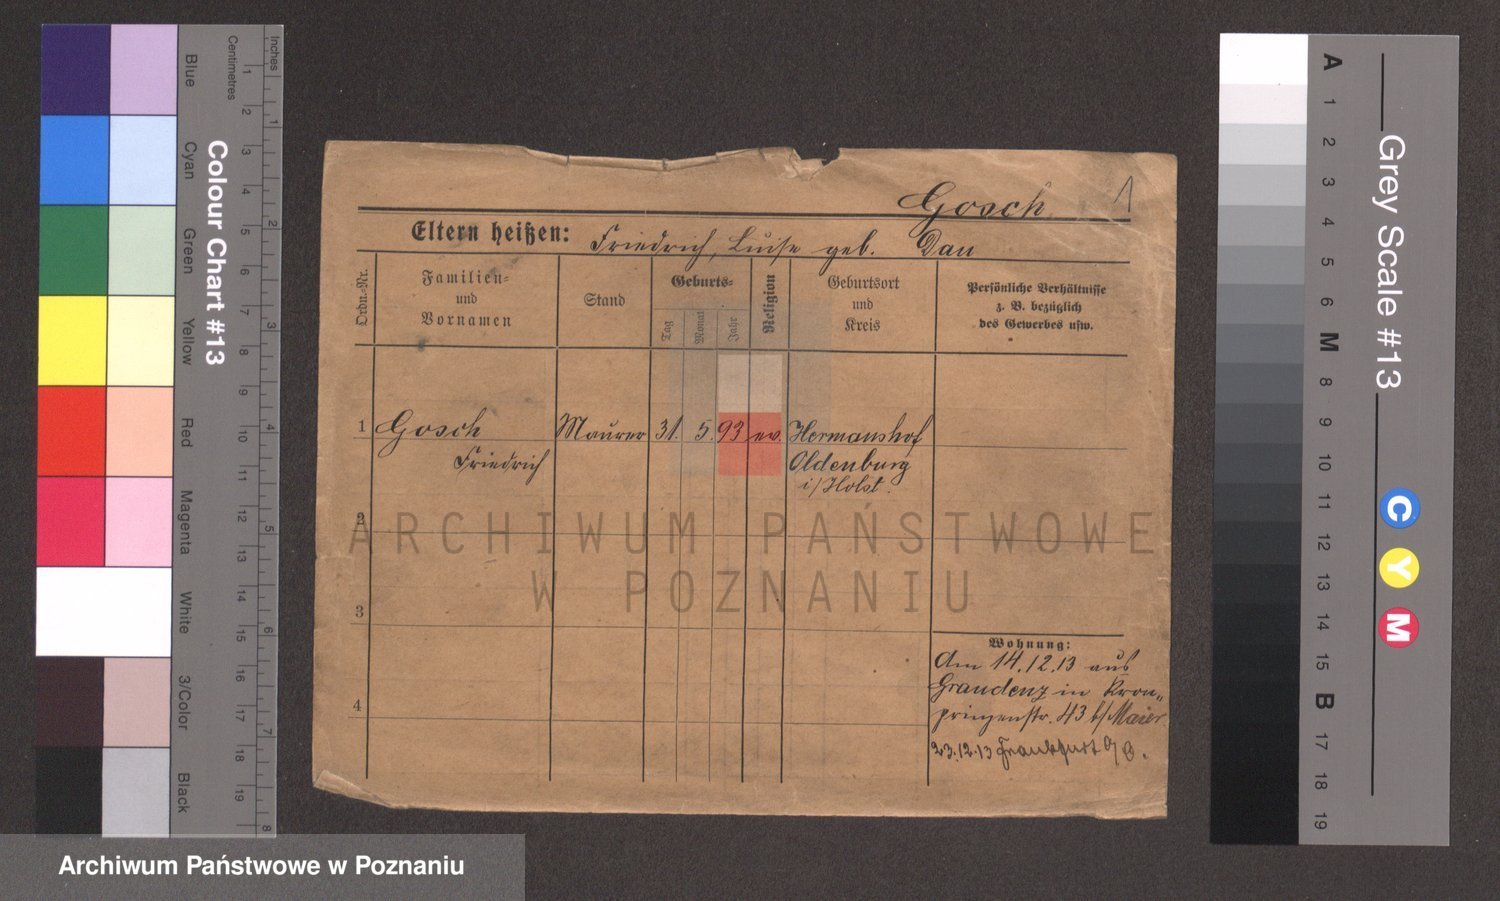 Gosch
1
Eltern heißen: Friedrich, Luise geb. Dau
Ordn.-Nr.
Familien-
und
Vornamen
Stand
Geburts-
Tag
Monat
Jahr
Religion
Geburtsort
und
Kreis
Persönliche Verhältnisse
z. B. bezüglich
des Gewerbes usw.
1 Gosch Maurer 31. 5. 93 ev. Hermanshof
Friedrich Oldenburg
i/Holst.
2
3
4
Wohnung:
Am 14.12.13 aus
Graudenz in Kron-
prinzenstr. 43 b/Maier.
23.12.13 Frankfurt a/O.
ARCHIWUM PAŃSTWOWE
W POZNANIU
Inches
Centimetres
1 2 3 4 5 6 7 8
1 2 3 4 5 6 7 8 9 10 11 12 13 14 15 16 17 18 19
Colour Chart #13
Blue
Cyan
Green
Yellow
Red
Magenta
White
3/Color
Black
Grey Scale #13
A 1 2 3 4 5 6 M 8 9 10 11 12 13 14 15 B 17 18 19
C
Y
M
Archiwum Państwowe w Poznaniu